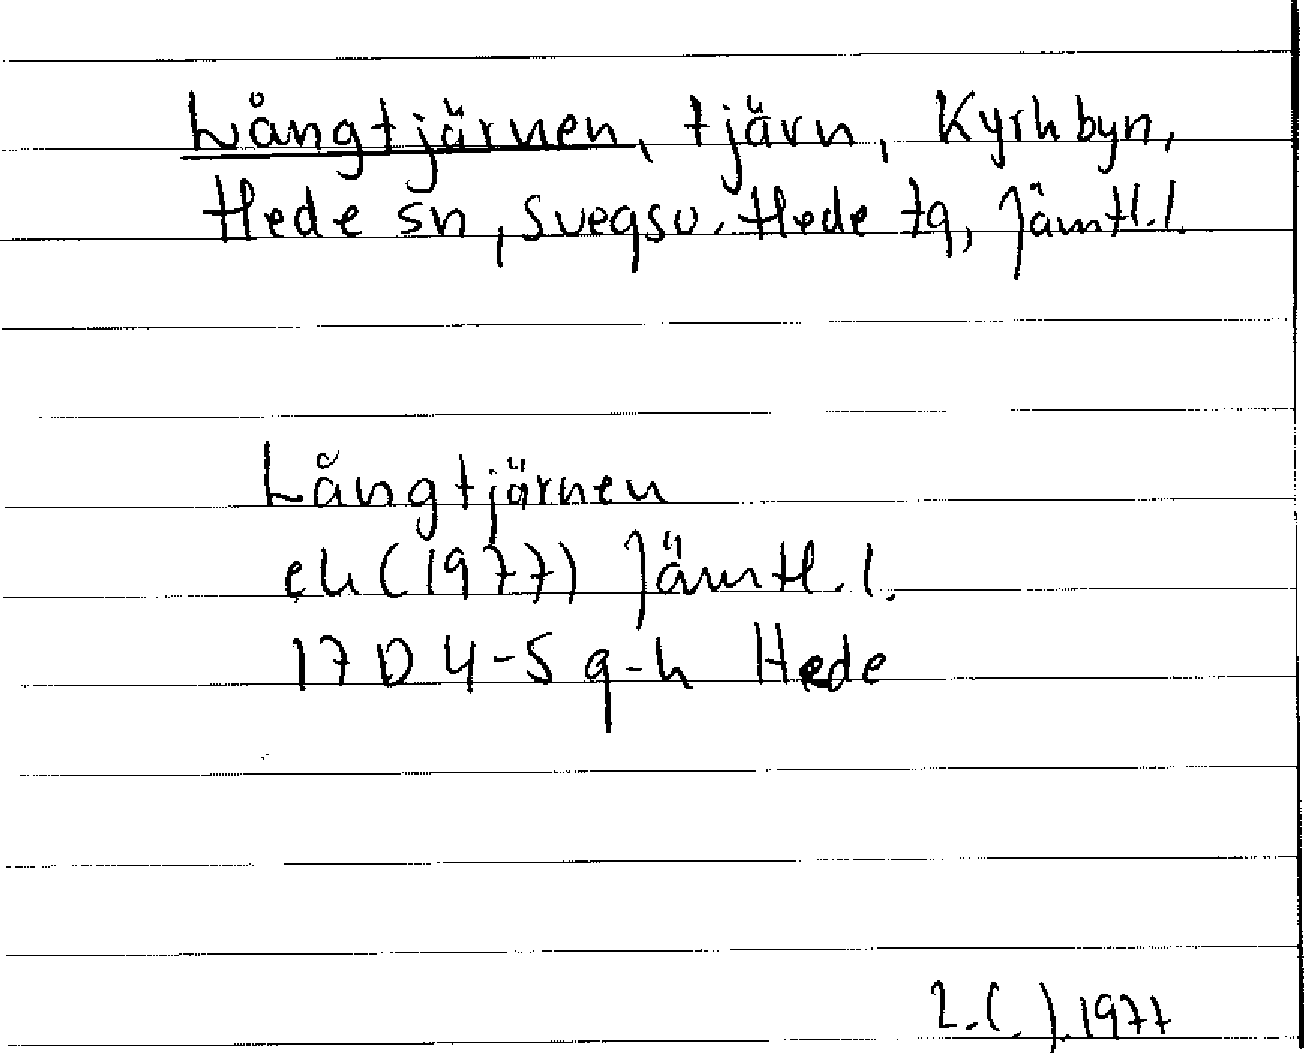 Långtjärnen, tjärn, Kyrkbyn,
Hede sn, Svegso. Hede tg, Jämtl.l.
Långtjärnen
ek (1977) Jämtl.l.
17 D 4-5 g-h Hede
1977